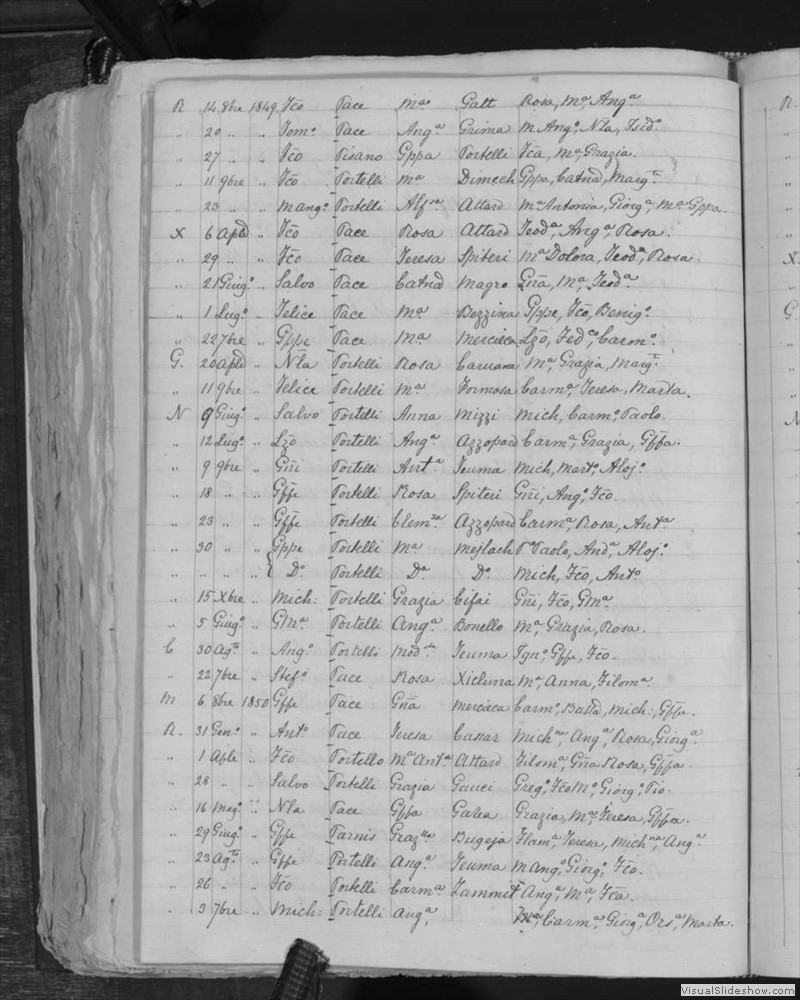 R 14 8bre 1849 Fco Pace Ma Gatt Rosa, Ma, Anga
" 20 " " Tomo Pace Anga Grima M Ango, Nla, Isido
" 27 " " Fco Pisano Gppa Portelli Fca, Ma, Grazia.
" 11 9bre " Fco Portelli Ma Dimech Gppa, Catnd, Margta
" 23 " " M ango Portelli Alfsa Attard Ma Antonia, Giorga, Ma Gppa.
X 6 Aple " Fco Pace Rosa Attard Teoda, Anga, Rosa.
" 29 " " Fco Pace Teresa Spiteri Ma Dolora, Teoda, Rosa.
" 21 Giugo " Salvo Pace Catnd Magro Gña, Ma, Teoda
" 1 Lugo " Felice Pace Ma Bezzina Gppe, Fco, Benigo
" 22 7bre " Gppe Pace Ma Mercieca Lzo, Fedco, Carmo
G. 20 Aple " Nla Portelli Rosa Caruana Ma, Grazia, Margta
" 11 9bre " Felice Portelli Ma Formosa Carma, Teresa, Marta.
N 9 Giugo " Salvo Portelli Anna Mizzi Mich, Carmo, Paolo
" 12 Lugo " Lzo Portelli Anga Azzopard Carma, Grazia, Gffa.
" 9 9bre " Gñi Portelli Anta Teuma Mich, Marto, Alojo
" 18 " " Gffe Portelli Rosa Spiteri Gñi, Ango, Fco.
" 23 " " Gffe Portelli Clemza Azzopard Carma, Rosa, Anta
" 30 " " Gppe Portelli Ma Mejlach Paolo, Anda, Alojo
" " " " Do Portelli Da Do Mich, Fco, Anto
" 15 Xbre " Mich: Portelli Grazia Cifai Gñi, Fco, G/Ma
" 5 Giugo " G/Ma Portelli Anga Bonello Ma, Grazia, Rosa.
C 30 Agto " Ango Portelli Modta Teuma Igno, Gffe, Fco.
" 22 7bre " Stefo Pace Rosa Xicluna Ma, Anna, Filoma
M 6 8bre 1850 Gffe Pace Gña Mercieca Carmo, Batta, Mich:, Gffe.
R. 31 Geno " Anto Pace Teresa Cassar Michna, Anga, Rosa, Giorga
" 1 Aple " Fco Portello Ma Anta Attard Filoma, Gña Rosa, Gffa.
" 28 " " Salvo Portelli Grazia Gauci Grego, Fco Mo, Giorgo, Pio.
" 16 Mago " Nla Pace Gffa Galea Grazia, Ma, Teresa, Gffa.
" 29 Giugo " Gffe Farnis Grazlla Bugeja Flama, Teresa, Michna, Anga
" 23 Agto " Gffe Portelli Anga Teuma M Ango, Giorgo, Fco.
" 26 " " Fco Portelli Carma Zammit Anga, Ma, Fca.
" 3 7bre " Mich: Portelli Anga, Ma, Carma, Giorga, Orsa, Marta.
R.
X
G.
N
VisualSlideshow.com